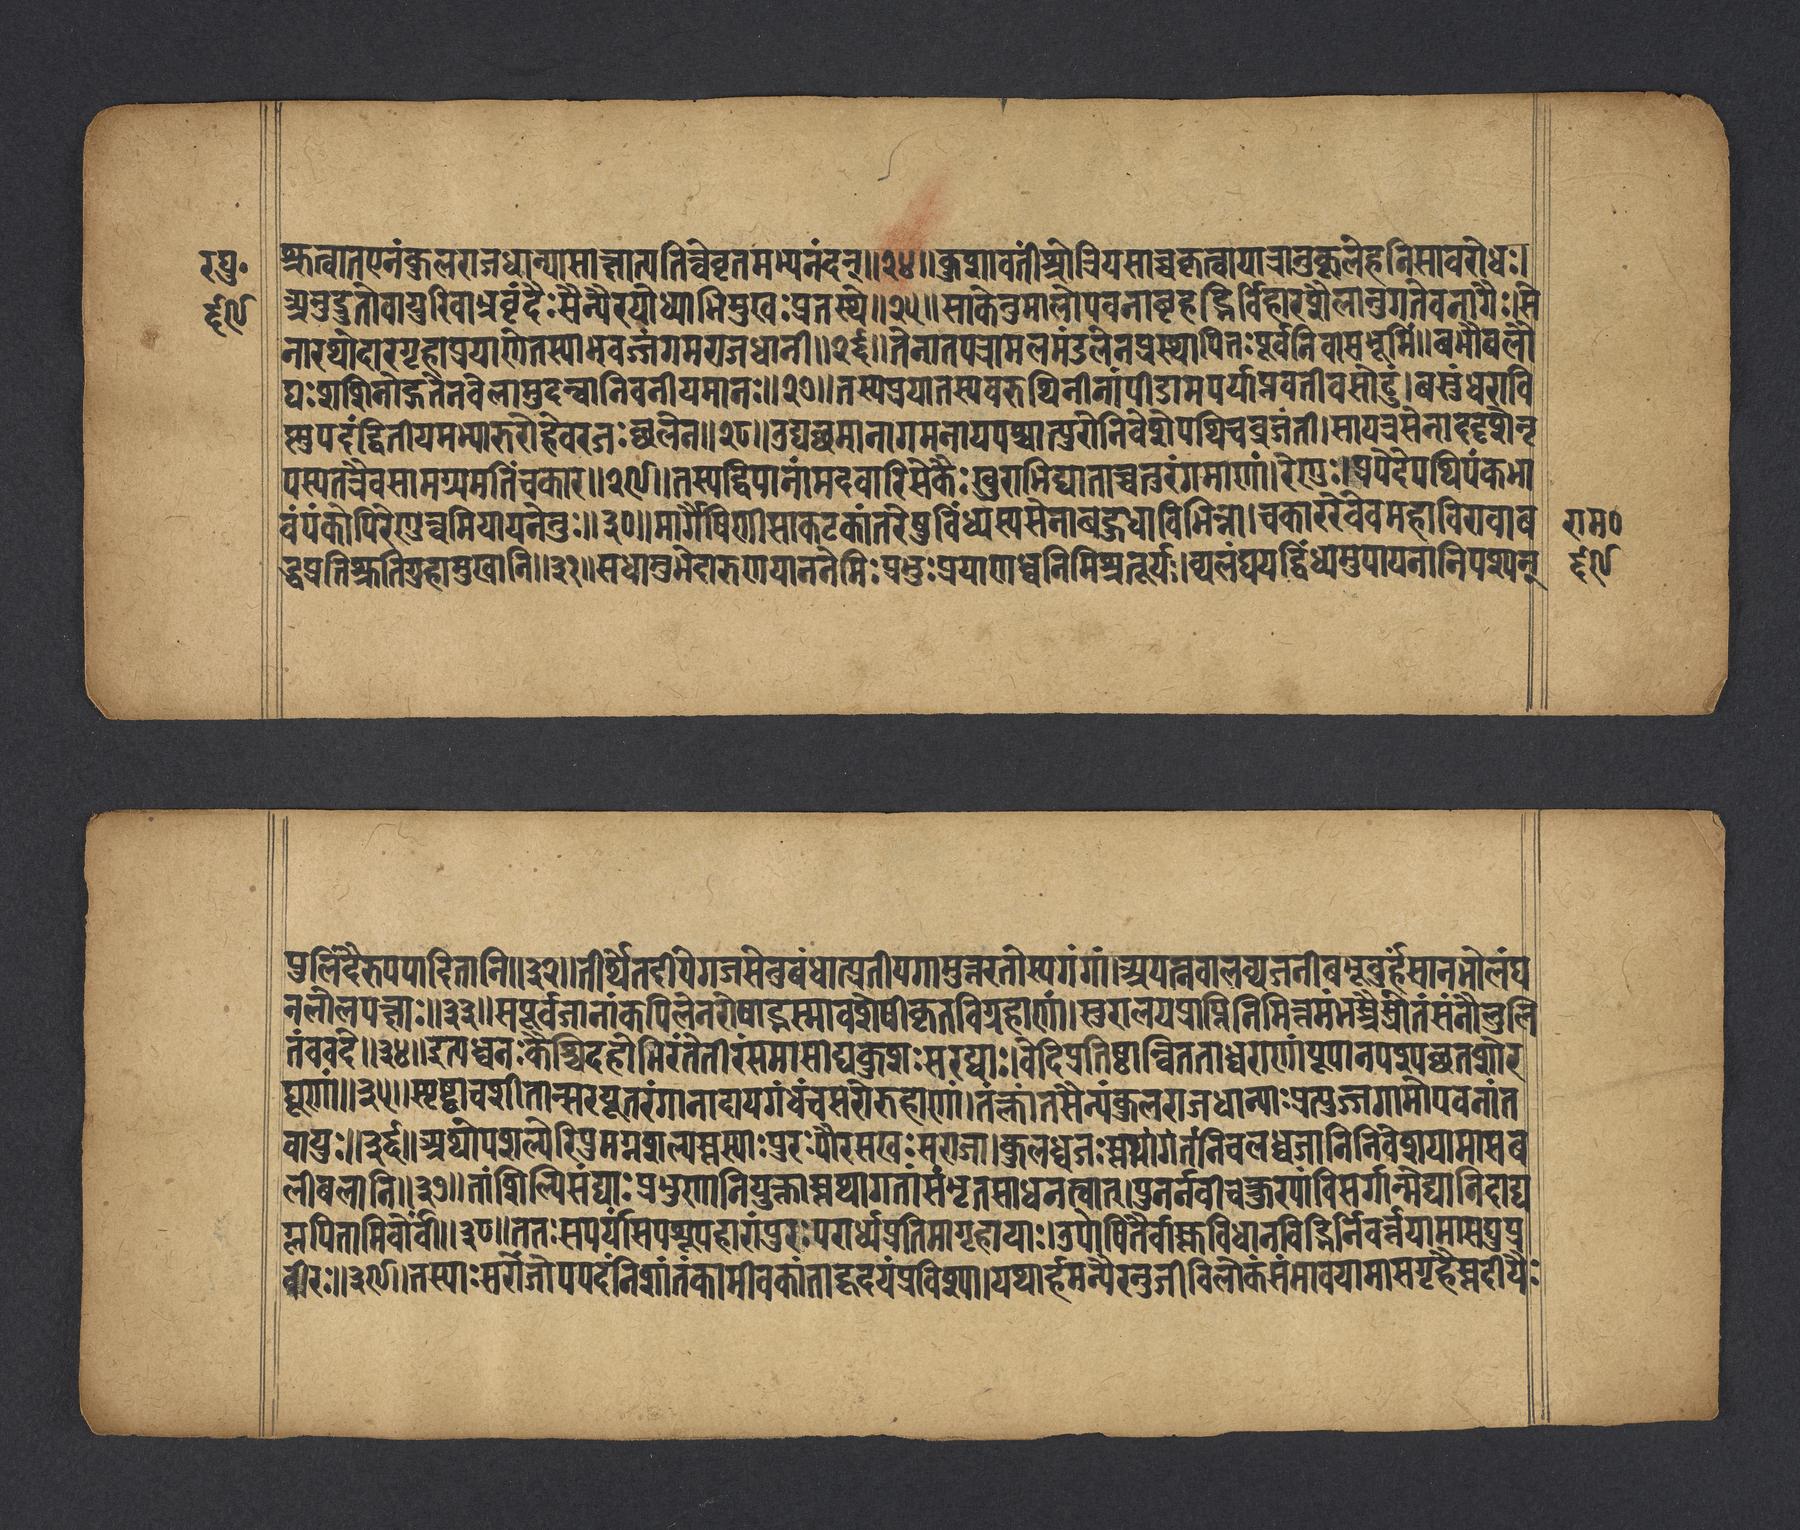 श्रुत्वातएनंकुलराजधान्यासाक्षात्पतित्वेवृतमभ्यनंदन्॥२४॥कुशावतींश्रोत्रियसाच्चकृत्वायात्रानुकूलेहनिसावरोधः।
रघु॰
अनुद्रुतोवायुरिवाभ्रवृंदैःसैन्यैरयोध्याभिमुखःप्रतस्थे॥२५॥साकेतुमालोपवनाबृहद्भिर्विहारशैलानुगतेवनागैः।से
६९
नारथोदारगृहाप्रयाणेतस्याभवज्जंगमराजधानी॥२६॥तेनातपत्रामलमंडलेनप्रस्थापितःपूर्वनिवासभूमिं॥बभौबलौ
घःशशिनोद्गतेनवेलामुदन्वानिवनीयमानः॥२७॥तस्यप्रयातस्यवरुथिनीनांपीडामपर्याप्तवतीवसोढुं।बसुंधरावि
ष्णुपदंद्वितीयमभ्यारुरोहेवरजःछलेन॥२८॥उद्यछमानागमनायपश्चात्पुरोनिवेशेपथिचव्रजंती।सायत्रसेनाददृशेनृ
पस्यतत्रैवसामग्र्यमतिंचकार॥२९॥तस्यद्विपानांमदवारिसेकैःखुराभिघाताच्चतुरंगमाणां।रेणुःप्रपेदेपथिपंकभा
वंपंकोपिरेणुत्वमियायनेतुः॥३०॥मार्गैषिणीसाकटकांतरेषुविंध्यस्यसेनाबहुधाविभिन्ना।चकाररेवेवमहाविरावाब
राम०
द्धप्रतिश्रुतिगुहामुखानि॥३१॥सधातुभेदारुणयाननेमिःप्रभुःप्रयाणध्वनिमिश्रतूर्यः।व्यलंघयद्विंध्यमुपायनानिपश्यन्
६९
पुलिंदैरुपपादितानि॥३२॥तीर्थेतदीयेगजसेतुबंधात्प्रतीपगामुत्तरतोस्यगंगां।अयत्नवालव्यजनीबभूवुर्हंसानभोलंघ
नलोलपक्षाः॥३३॥सपूर्वजानांकपिलेनरोषाद्भस्मावशेषीकृतविग्रहाणां।सुरालयप्राप्तिनिमित्तमंभस्त्रैस्रोतसंनौलुलि
तंववंदे॥३४॥इत्यध्वनःकैश्चिदहोभिरंतेतीरंसमासाद्यकुशःसरय्वाः।वेदिप्रतिष्ठान्वितताध्वराणांयूपानपश्यछतशोर
घूणां॥३५॥स्पृष्ट्वाचशीतान्सरयूतरंगानादायगंधंचसरोरुहाणां।तंक्लांतसैन्यंकुलराजधान्याःप्रत्युज्जगामोपवनांत
वायुः॥३६॥अथोपशल्येरिपुमग्नशल्यस्तस्याःपुरःपौरसखःसराजा।कुलध्वजःस्तांनिचलध्वजानिनिवेशयामासब
लीबलानि॥३७॥तांशिल्पिसंघाःप्रभुणानियुक्तास्तथागतांसंभृतसाधनत्वात्।पुनर्नवीचक्रुरपांविसर्गान्मेघानिदाघ
ग्लपितामिवोर्वीं॥३८॥ततःसपर्यांसपशूपहारांपुरःपरार्ध्यप्रतिमागृहायाः।उपोषितैर्वास्तुविधानविद्भिर्निवर्तयामासरघुप्र
वीरः॥३९॥तस्याःसराजोपपदंनिशांतंकामीवकांताहृदयंप्रविश्य।यथार्हमन्यैरनुजीविलोकंसंभावयामासगृहैस्तदीयैः